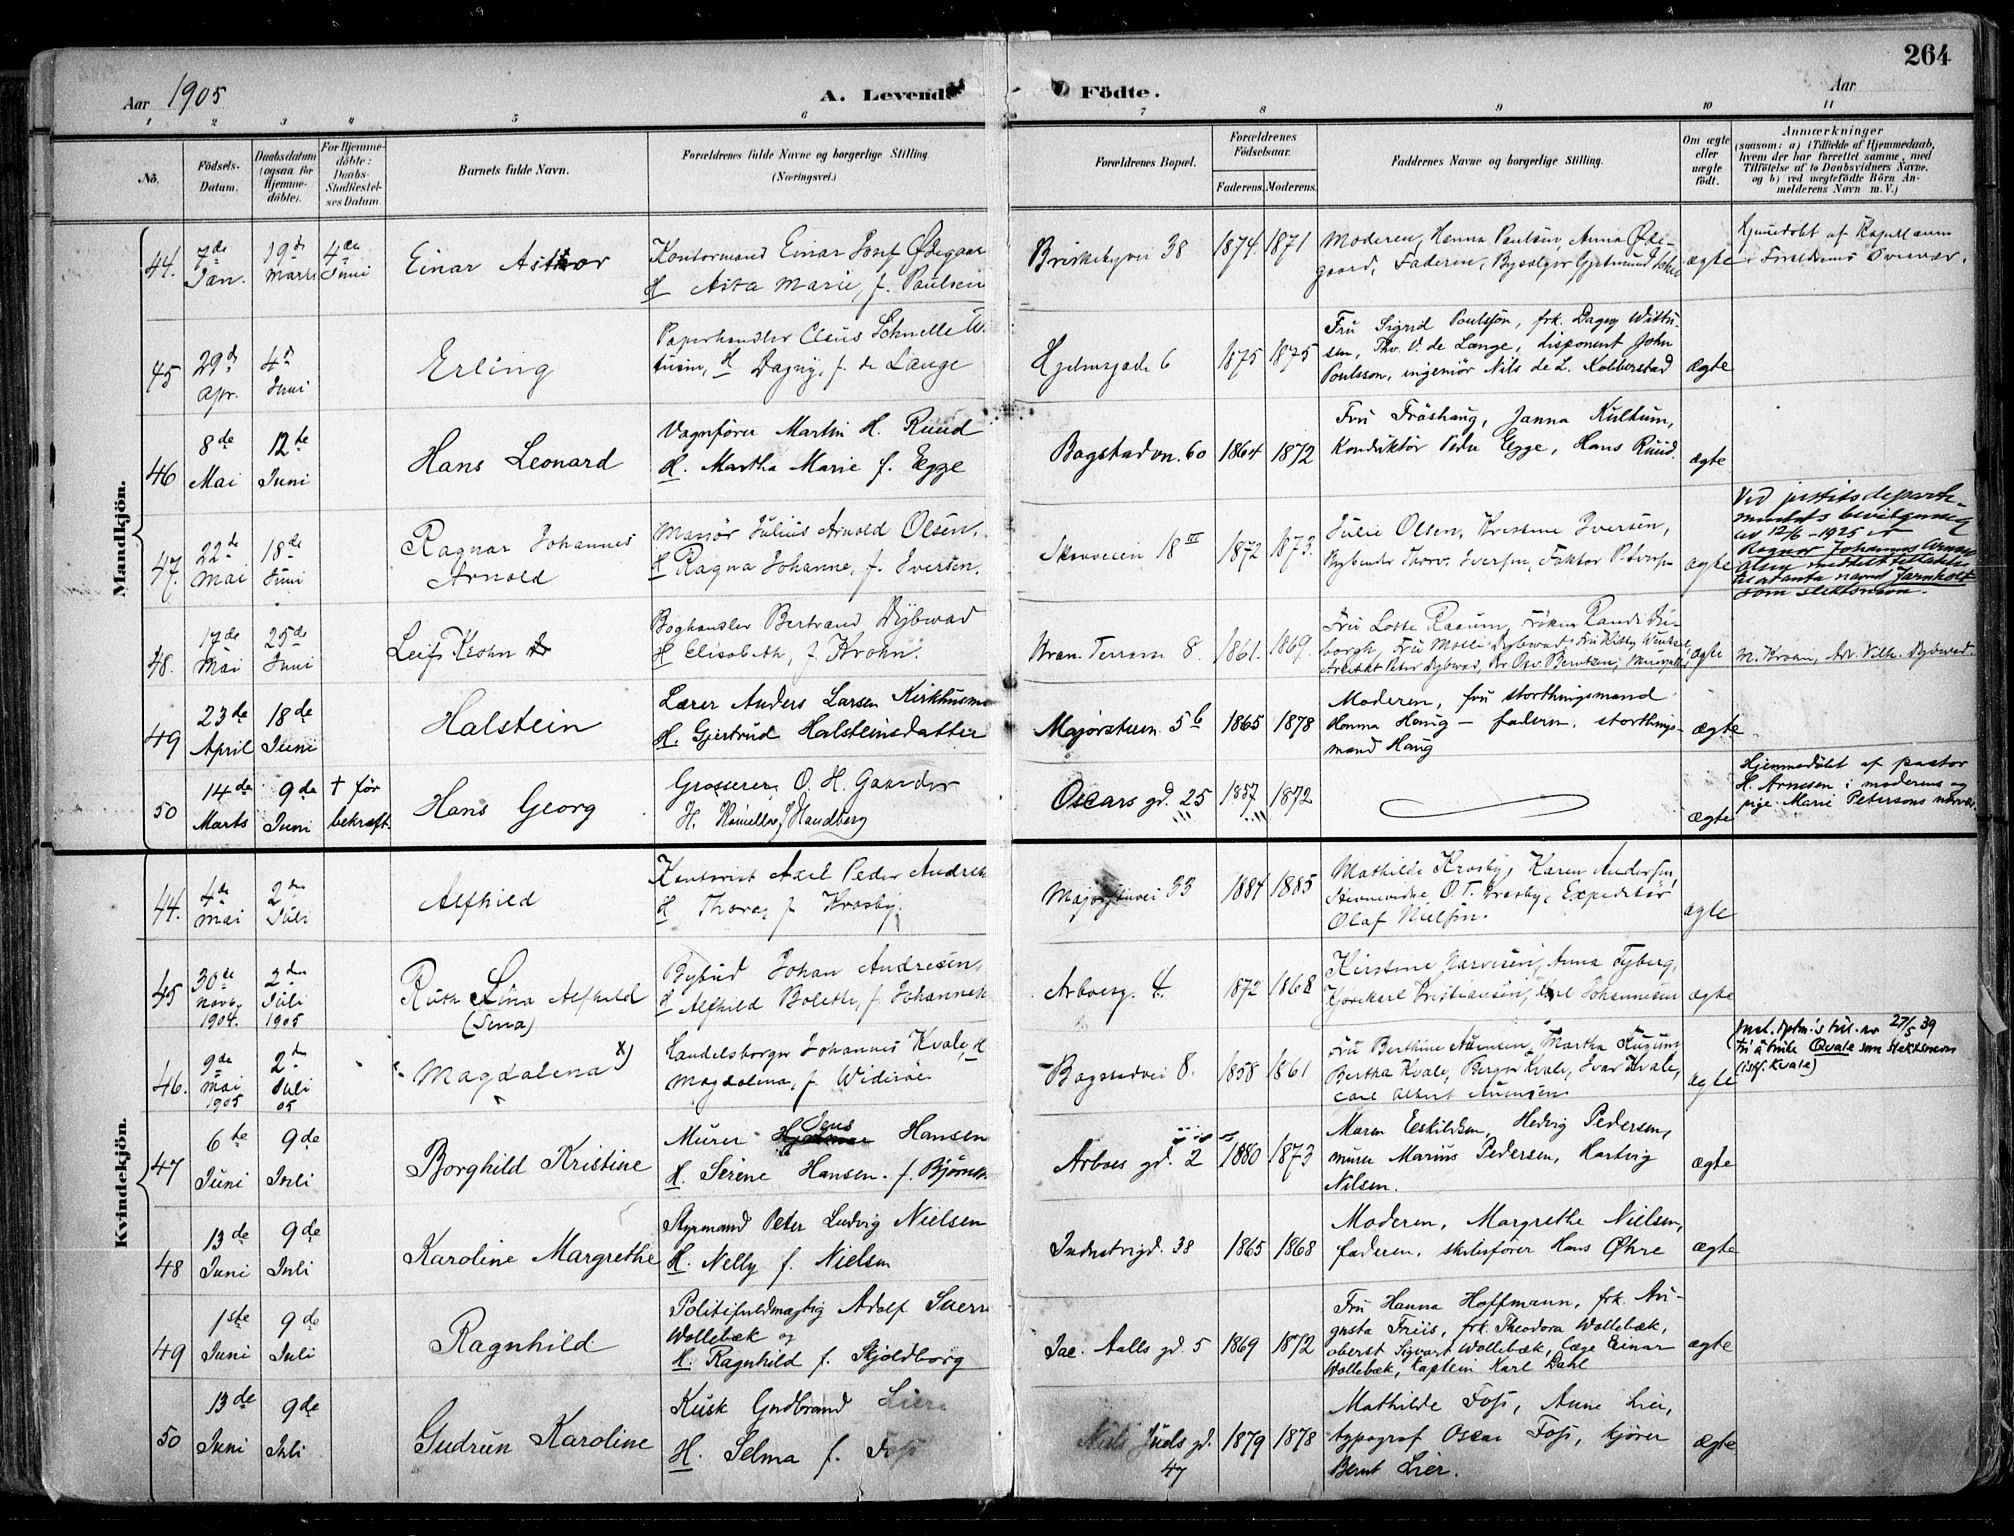 264
Aar 1905
A. Levende Födte.
Aar
1 2 3 4 5 6 7 8 9 10 11
No.
Födsels-
Datum.
Daabsdatum
(ogsaa for
Hjemme-
döbte).
For Hjemme-
döbte:
Daabs-
Stadfæstel-
ses Datum.
Barnets fulde Navn.
Forældrenes fulde Navne og borgerlige Stilling.
(Næringsvei.)
Forældrenes Bopæl.
Forældrenes
Födselsaar.
Faderens. Moderens.
Faddernes Navne og borgerlige Stilling.
Om ægte
eller
uægte
födt.
Anmærkninger
(saasom: a) i Tilfælde af Hjemmedaab,
hvem der har forrettet samme, med
Tilföielse af to Daabsvidners Navne,
og b) ved uægtefödte Börn An-
melderens Navn m. V.)
Mandkjön.
44. 7de Jan. 19de Marts 4de Juni
Einar Astor
Kontormand Einar Josef Ødegaar
H Asta Marie, f. Paulsen
Briskebyvei 38 1874. 1871
Moderen, Henna Paulsen, Anna Øde-
gaard, Faderen,
ægte
45 29d Apr. 4d Juni
Erling
Papirhandler Claus Schnelle W.
H Dagny, f. de Lange
Hjelmsgade 6 1875 1875
Fru Sigrid Poulsson, frk. Dagny Wittu-
sen, Thv. V. de Lange, disponent John
Poulsson, ingeniör Nils de L. Kobberstad
ægte
46 8de Mai 12te Juni
Hans Leonard
Vognfører Martin H. Ruud
H. Martha Marie f. Egge
Bogstadvn. 60 1864 1872
Fru Fröshaug, Janna Kultum,
Konduktör Peder Egge, Hans Ruud.
ægte
47. 22de Mai 18de Juni
Ragnar Johannes
Arnold
Majör Julius Arnold Olsen,
H Ragna Johanne, f. Iversen.
Skovveien 18 III 1872 1873.
Julie Olsen, Kristine Iversen,
Thorv. Iversen, Faktor
ægte
Ved justitsdeparte-
mentets bevilgning
av 12/6 - 1925 er
Ragnar Johannes Arnold
Olsen meddelt tilladelse
til at anta navnet Jarnholt
som slektsnavn.
48. 17de Mai 25de Juni
Leif Krohn
Boghandler Bertrand Dybwad
H Elisabeth, f. Krohn.
Uran. Terrasse 8. 1861. 1869.
Fru Lotte
ægte
M. Krohn, Adv. Vilh. Dybwad.
49 23de April 18de Juni
Halstein
Lærer Anders Larsen Kirkhusmo
H. Gjertrud Halsteinsdatter
Majorstuen 5b 1865 1878
Moderen, fru storthingsmand
Hanna Haug — faderen, storthings-
mand Haug
ægte
50 14de Marts 9de Juni † før bekræft.
Hans Georg
Grosserer O. H. Gaarder
H. Kamilla f. Handberg
Oscars gd. 25 1857 1872
ægte
Hjemmedöbt af pastor
H. Arnesen i moderens og
pige Marie Petersons nærvær.
Kvindekjön.
44. 4de Mai 2den Juli
Alfhild
Kontorist Axel Peder Andrés
H Thora, f. Krosby.
Majorstuvei 33 1884 1885
Mathilde Krosby, Karen Andersen,
O. T. Krosby, Expeditör
Olaf Nielsen.
ægte
45 30te Novb. 1904. 2den Juli 1905
Ruth Lina Alfhild
(Sina)
Bybud Johan Andresen,
H Alfhild Bolette, f. Johannes
Arboesg. 4. 1872 1868
Kirstine Narvesen, Anna Fyberg,
Kristiansen, Johannesen
ægte
46. 9de Mai 1905 2den Juli 05
Magdalena x)
Handelsborger Johannes Kvale, H
Magdalena, f. Widerøe
Bogstadvei 8. 1858 1861
Fru Berthine Auensen, Martha
Bertha Kvale, Berger Kvale, Ivar Kvale,
Carl Albert Auensen
ægte
Just. dptm's till. av 27/5 39
til å bruke Qvale som slektsnavn
(istf. Kvale)
47 6te Juni 9de Juli
Borghild Kristine
Murer Jens Hansen
H. Serine Hansen. f. Björns
Arboes gd. 2 1880 1873
Maren Eskildsen, Hedvig Pedersen,
murer Marius Pedersen, Hartvig
Nilsen.
ægte
48 13de Juni 9de Juli
Karoline Margrethe
Styrmand Peter Ludvig Nielsen
H. Nelly f. Nielsen
Industrigd. 38 1865 1868
Moderen, Margrethe Nielsen,
faderen, skibsfører Hans Øhre
ægte
49 1ste Juni 9de Juli
Ragnhild
Politifuldmægtig Adolf Sverr
Wollebæk og
H. Ragnhild f. Skjoldborg
Jac. Aalls gd. 5 1869 1872
Fru Hanna Hoffmann, frk. Au-
gusta Friis, frk. Theodora Wollebæk,
oberst Sigvart Wollebæk, læge Einar
Wollebæk, kaptein Karl Dahl
ægte
50 13de Juni 9de Juli
Gudrun Karoline
Kusk Gudbrand Lier
H. Selma f. Foss
Niels Juels gd. 47 1879 1878
Mathilde Foss, Anne Lier,
typograf Oscar Foss, kjører
Bernt Lier.
ægte